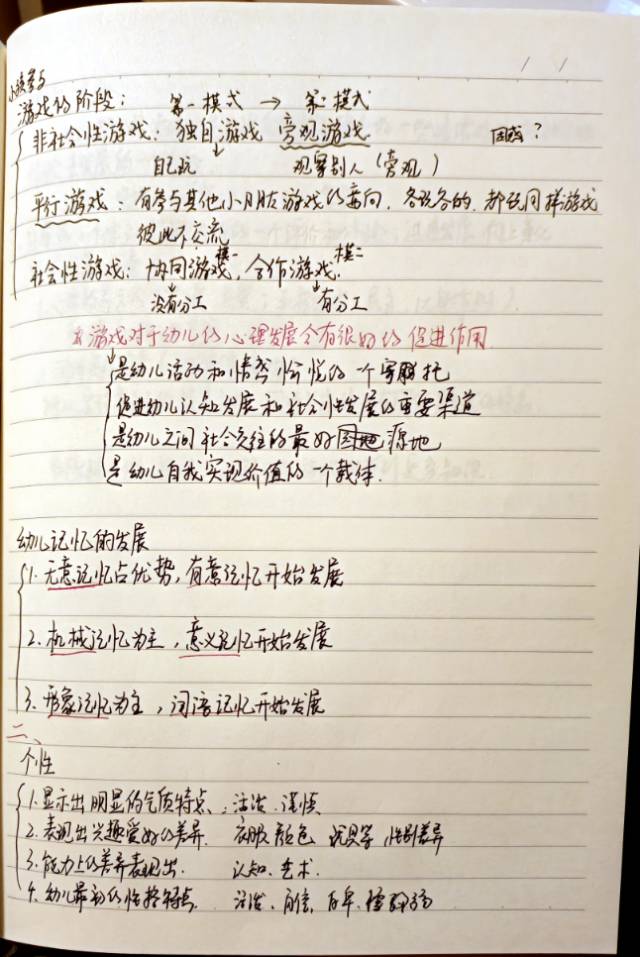 小孩参与
游戏的阶段： 第一模式 → 第二模式
非社会性游戏：独自游戏 旁观游戏 因或？
自己玩 观察别人（旁观）
平行游戏：有参与其他小朋友游戏的意向，各玩各的，都玩同样游戏
彼此不交流
社会性游戏：协同游戏模一，合作游戏模二
没有分工 有分工
游戏对于幼儿的心理发展会有很好的促进作用
是幼儿活动和情感愉悦的一个寄托
促进幼儿认知发展和社会性发展的重要渠道
是幼儿之间社会交往的最好源地
是幼儿自我实现价值的一个载体.
幼儿记忆的发展
1. 无意记忆占优势，有意记忆开始发展
2. 机械记忆为主，意义记忆开始发展
3. 形象记忆为主，词语记忆开始发展
二、
个性
1. 显示出明显的气质特点、：活泼、谨慎
2. 表现出兴趣爱好的差异. 衣服颜色 玩具等，性别差异
3. 能力上的差异表现出. 认知、艺术.
4. 幼儿最初的性格特点. 活泼、自信、自卑、懦弱